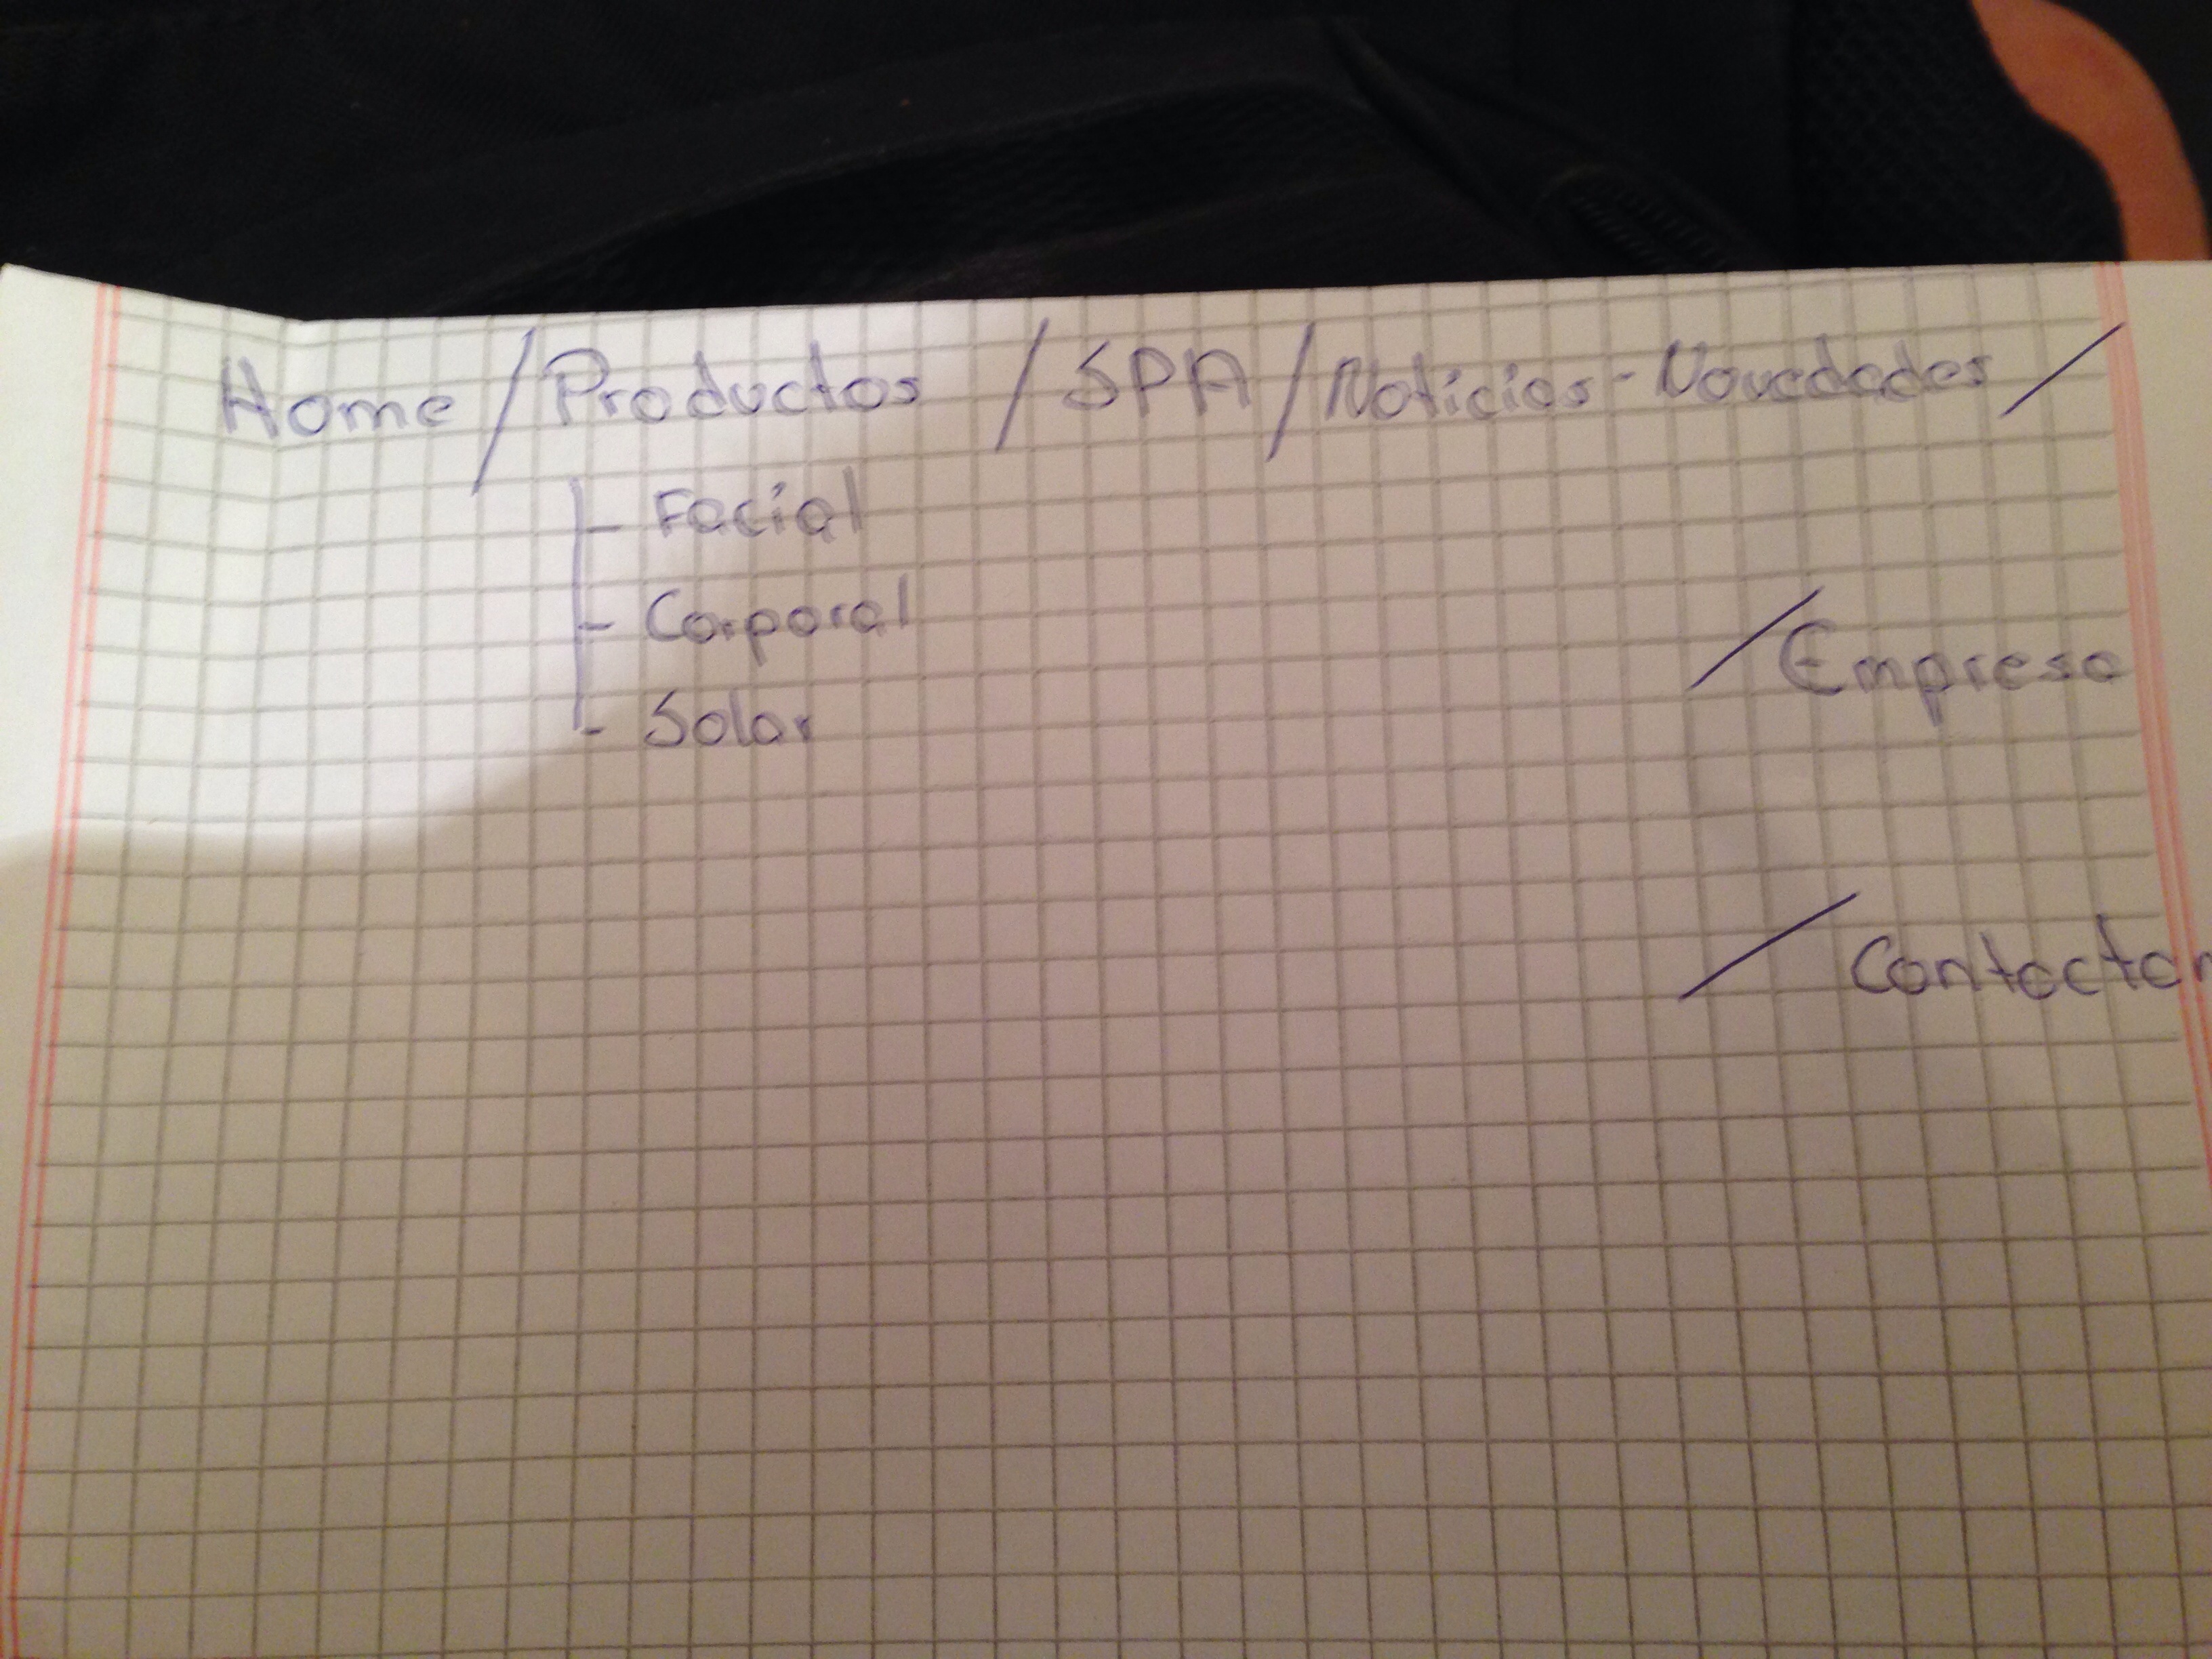 Home / Productos / SPA / Noticias - Novedades /
- Facial
- Corporal
- Solar
/ Empresa
/ Contactar